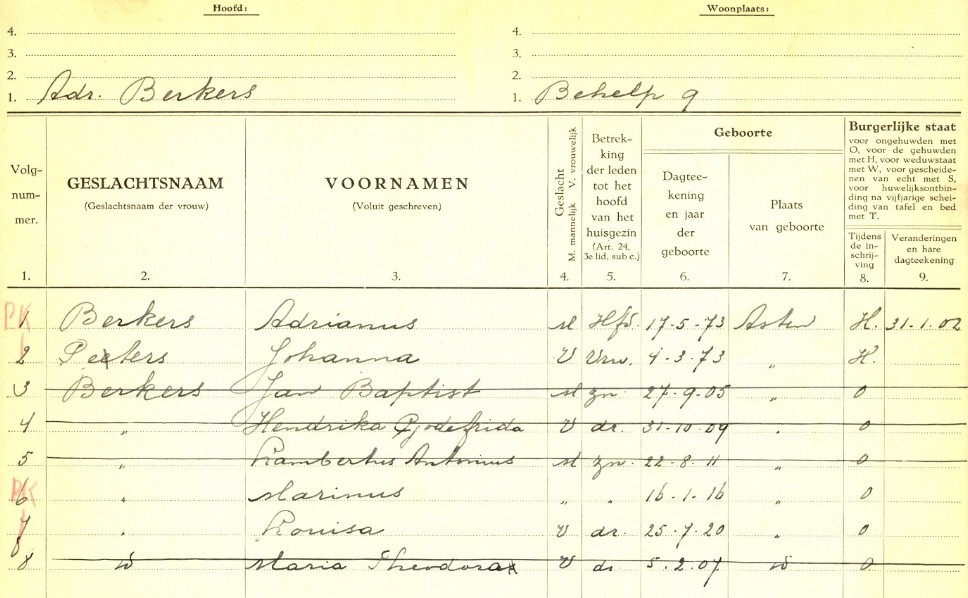 Hoofd: Woonplaats:
4. 4.
3. 3.
2. 2.
1. Adr. Berkers 1. Behelp 9
Volg-num-mer. GESLACHTSNAAM (Geslachtsnaam der vrouw) VOORNAMEN (Voluit geschreven) Geslacht M. mannelijk V. vrouwelijk Betrek-king der leden tot het hoofd van het huisgezin (Art. 24, 3e lid, sub c.) Geboorte Dagtee-kening en jaar der geboorte Plaats van geboorte Burgerlijke staat voor ongehuwden met O, voor de gehuwden met H, voor weduwstaat met W, voor gescheide-nen van echt met S, voor huwelijksontbin-ding na vijfjarige schei-ding van tafel en bed met T. Tijdens de in-schrij-ving Veranderingen en hare dagteekening
1. 2. 3. 4. 5. 6. 7. 8. 9.
PK 1 Berkers Adrianus M Hfd. 17-5-73 Asten H. 31-1-02
2 Peeters Johanna V Vrw. 4-3-73 " H.
3 Berkers Jan Baptist M zn. 27-9-05 " O
4 " Hendrika Godefrida V dr. 31-10-09 " O
5 " Lambertus Antonius M zn. 22-8-11 " O
PK 6 " Marinus " " 16-1-16 " O
7 " Louisa V dr. 25-7-20 " O
8 Maria Theodora V dr 5-2-07 O